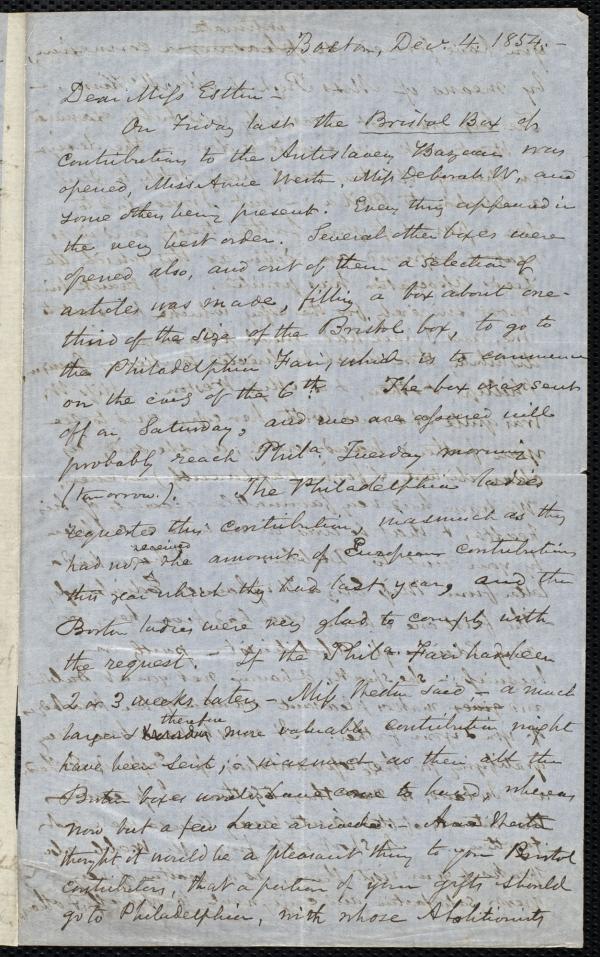 Boston, Dec. 4, 1854.-
Dear Miss Esther -
On Friday last the Bristol Box of
contributions to the Antislavery Bazaar was
opened, Miss Anne Weston, Miss Deborah W., and
some others being present. Every thing appeared in
the very best order. Several other boxes were
opened also, and out of them a selection of
articles was made, filling a box about one-
third of the size of the Bristol box, to go to
the Philadelphia Fair, which is to commence
on the evg of the 6th. The box was sent
off on Saturday, and we are assured will
probably reach Phila. Tuesday morning
(tomorrow.). The Philadelphia ladies
requested this contribution, inasmuch as they
had not received the amount of European contributions
this year which they had last year, and the
Boston ladies were very glad to comply with
the request. - If the Phila. Fair had been
2 or 3 weeks later, - Miss Weston said, - a much
larger & therefore more valuable contribution might
have been sent, inasmuch as then all the
Boston boxes would have come to hand, whereas
now but a few have arrived. - Anne Weston
thought it would be a pleasant thing to your Bristol
contributors, that a portion of your gifts should
go to Philadelphia, with whose Abolitionists